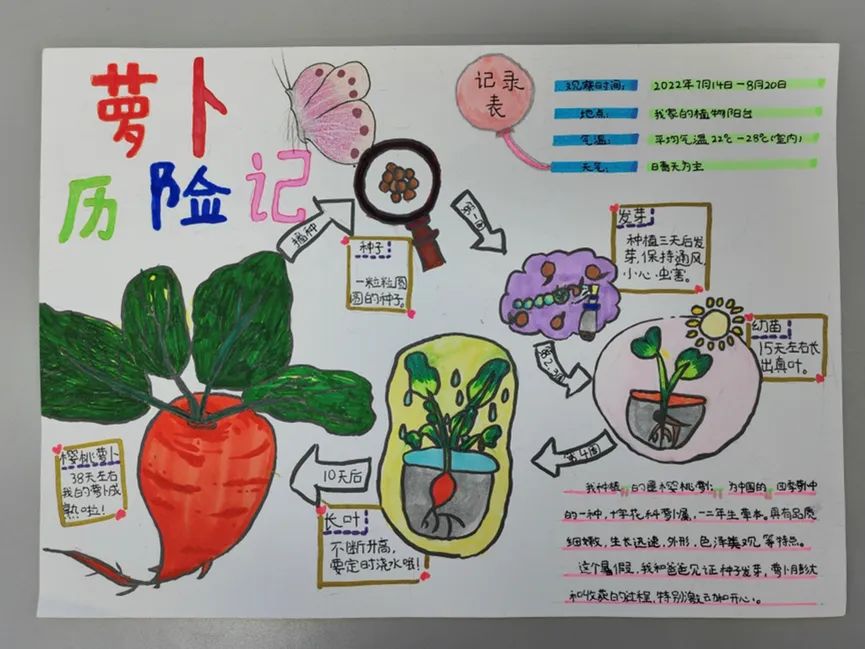 萝卜
历险记
记录
表
观察时间：
2022年7月14日－8月20日
地点：
我家的植物阳台
气温：
平均气温22℃－28℃（室内）
天气：
日晴天为主
播种
种子
一粒粒圆
圆的种子
第1周
发芽
种植三天后发
芽，保持通风
小心虫害。
幼苗
15天左右长
出真叶。
第4周
10天后
长叶
不断升高，
要定时浇水哦！
樱桃萝卜
38天左右
我的萝卜成
熟啦！
我种植的是樱桃萝卜，为中国的四季萝卜中
的一种，十字花科萝卜属，一二年生草本。具有品质
细嫩，生长迅速，外形，色泽美观等特点。
这个暑假，我和爸爸见证种子发芽，萝卜膨大
和收获的过程，特别激动和开心。